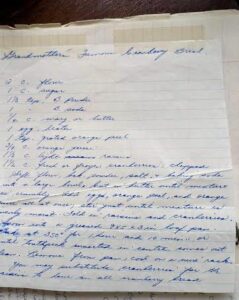 Grandmother's Famous Cranberry Bread
2 c. flour
1 c. sugar
1½ tsp. B. Powder
B. soda
c. marg or butter
1 egg, beaten
1 tsp. grated orange peel
¾ c. orange juice
1½ c. light raisins
1½ c. fresh or frozen cranberries chopped
Sift flour, sugar, powder, salt, & baking soda
into a large bowl, cut in butter until mixture
is crumbly. Add egg, orange peel, and orange
juice all at once, stir just until mixture is
evenly moist. Fold in raisins and cranberries.
Spoon into a greased 9x5x3 in loaf pan.
Bake at 350° for 1 hour and 10 min. or
until toothpick inserted in center comes out
clean. Remove from pan, cool on a wire rack.
You may substitute cranberries for the
raisins to have an all cranberry bread.